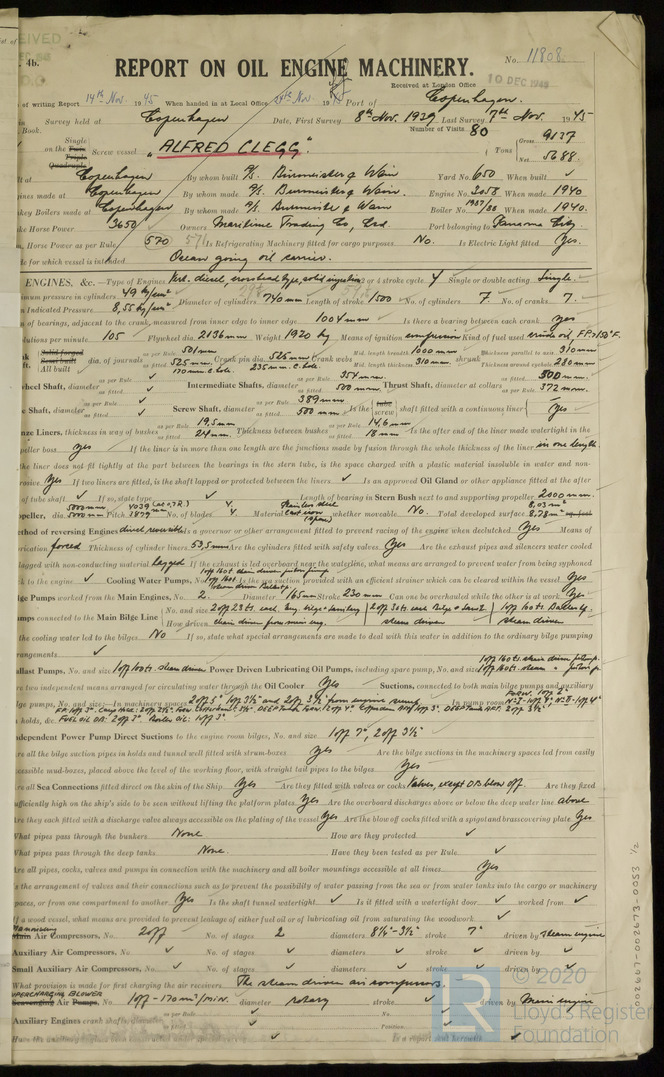 4b.
REPORT ON OIL ENGINE MACHINERY.
No. 11808.
Received at London Office
10 DEC 1945
of writing Report 14th Nov. 1945 When handed in at Local Office 24th Nov. 1945 Port of Copenhagen.
Survey held at Copenhagen Date, First Survey 8th Nov. 1939 Last Survey 7th Nov. 1945
Book.
Number of Visits 80
on the Single Twin Triple Quadruple Screw vessel "ALFRED CLEGG". Tons Gross 9137 Net 5688.
Copenhagen By whom built A/s. Burmeister & Wain Yard No. 650 When built ✓
Engines made at Copenhagen By whom made A/s. Burmeister & Wain. Engine No. 3058 When made 1940
Boilers made at Copenhagen By whom made A/s. Burmeister & Wain Boiler No. When made 1940.
Horse Power 3650 Owners Maritime Trading Co, Ltd Port belonging to Panama City.
Horse Power as per Rule 570 571 Is Refrigerating Machinery fitted for cargo purposes No. Is Electric Light fitted Yes.
for which vessel is intended Ocean going oil carrier.
ENGINES, &c. —Type of Engines Vert. diesel, crosshead type, solid injection 2 or 4 stroke cycle 4 Single or double acting Single.
pressure in cylinders 49 kg/cm² Diameter of cylinders 740 mm Length of stroke 1500 No. of cylinders 7 No. of cranks 7.
Indicated Pressure 8,55 kg/cm²
of bearings, adjacent to the crank, measured from inner edge to inner edge 1004 mm Is there a bearing between each crank Yes
per minute 105 Flywheel dia. 2136 mm Weight 1920 kg Means of ignition compression Kind of fuel used crude oil, F.P. >150°F.
Solid forged Semi built All built dia. of journals as per Rule 501 mm as fitted 525 mm Crank pin dia. 525 mm Crank webs Mid. length breadth 1000 mm Mid. length thickness 310 mm shrunk Thickness parallel to axis 310 mm Thickness around eyehole 280 mm
Wheel Shaft, diameter as per Rule ✓ as fitted Intermediate Shafts, diameter as per Rule 354 mm as fitted 500 mm Thrust Shaft, diameter at collars as per Rule 372 mm as fitted 500 mm
Shaft, diameter as per Rule ✓ as fitted ✓ Screw Shaft, diameter as per Rule 389 mm as fitted 500 mm Is the tube screw shaft fitted with a continuous liner Yes
Liners, thickness in way of bushes as per Rule 19,5 mm as fitted 24 mm Thickness between bushes as per Rule 14,6 mm as fitted 18 mm Is the after end of the liner made watertight in the
propeller boss Yes If the liner is in more than one length are the junctions made by fusion through the whole thickness of the liner in one length
the liner does not fit tightly at the part between the bearings in the stern tube, is the space charged with a plastic material insoluble in water and non-
Yes If two liners are fitted, is the shaft lapped or protected between the liners ✓ Is an approved Oil Gland or other appliance fitted at the after
of tube shaft ✓ If so, state type ✓ Length of bearing in Stern Bush next to and supporting propeller 2000 mm.
Propeller, dia. 5000 mm Pitch No. of blades 4 Material Stainless steel Cast iron (spare) whether moveable No. Total developed surface 8,78 m²
Method of reversing Engines direct reversible Is a governor or other arrangement fitted to prevent racing of the engine when declutched Yes Means of
lubrication forced Thickness of cylinder liners 53,5 mm Are the cylinders fitted with safety valves Yes Are the exhaust pipes and silencers water cooled
lagged with non-conducting material Lagged If the exhaust is led overboard near the waterline, what means are arranged to prevent water from being syphoned
to the engine ✓ Cooling Water Pumps, No. Is the sea suction provided with an efficient strainer which can be cleared within the vessel Yes
Pumps worked from the Main Engines, No. 2. Diameter 165 mm Stroke 230 mm Can one be overhauled while the other is at work Yes
Pumps connected to the Main Bilge Line No. and size How driven steam driven steam driven
the cooling water led to the bilges No If so, state what special arrangements are made to deal with this water in addition to the ordinary bilge pumping
arrangements ✓
Ballast Pumps, No. and size 1 off 100 ts. steam driven Power Driven Lubricating Oil Pumps, including spare pump, No. and size
two independent means arranged for circulating water through the Oil Cooler Yes Suctions, connected to both main bilge pumps and auxiliary
bilge pumps, No. and size:—In machinery spaces In pump room
holds, &c.
Independent Power Pump Direct Suctions to the engine room bilges, No. and size 1 off 7", 2 off 3½"
all the bilge suction pipes in holds and tunnel well fitted with strum-boxes Yes Are the bilge suctions in the machinery spaces led from easily
accessible mud-boxes, placed above the level of the working floor, with straight tail pipes to the bilges Yes
all Sea Connections fitted direct on the skin of the Ship Yes Are they fitted with valves or cocks Valves, except D.B. blow off. Are they fixed
sufficiently high on the ship's side to be seen without lifting the platform plates Yes Are the overboard discharges above or below the deep water line above
they each fitted with a discharge valve always accessible on the plating of the vessel Yes Are the blow off cocks fitted with a spigot and brass covering plate Yes
What pipes pass through the bunkers None How are they protected ✓
What pipes pass through the deep tanks None. Have they been tested as per Rule ✓
all pipes, cocks, valves and pumps in connection with the machinery and all boiler mountings accessible at all times Yes
Is the arrangement of valves and their connections such as to prevent the possibility of water passing from the sea or from water tanks into the cargo or machinery
spaces, or from one compartment to another Yes Is the shaft tunnel watertight ✓ Is it fitted with a watertight door ✓ worked from ✓
If a wood vessel, what means are provided to prevent leakage of either fuel oil or of lubricating oil from saturating the woodwork ✓
Manoeuvring Main Air Compressors, No. 2 off No. of stages 2 diameters 8½"–3½" stroke 7" driven by steam engine
Auxiliary Air Compressors, No. ✓ No. of stages ✓ diameters ✓ stroke ✓ driven by ✓
Small Auxiliary Air Compressors, No. ✓ No. of stages ✓ diameters ✓ stroke ✓ driven by ✓
What provision is made for first charging the air receivers The steam driven air compressors.
SUPERCHARGING BLOWER Scavenging Air Pumps, No. 1 off – 170 m³/min. diameter rotary stroke ✓ driven by Main engine
Auxiliary Engines crank shafts, diameter as per Rule ✓ as fitted ✓ No. ✓ Position ✓
002667-002673-0053 1/2
© 2020
LR
Lloyd's Register
Foundation